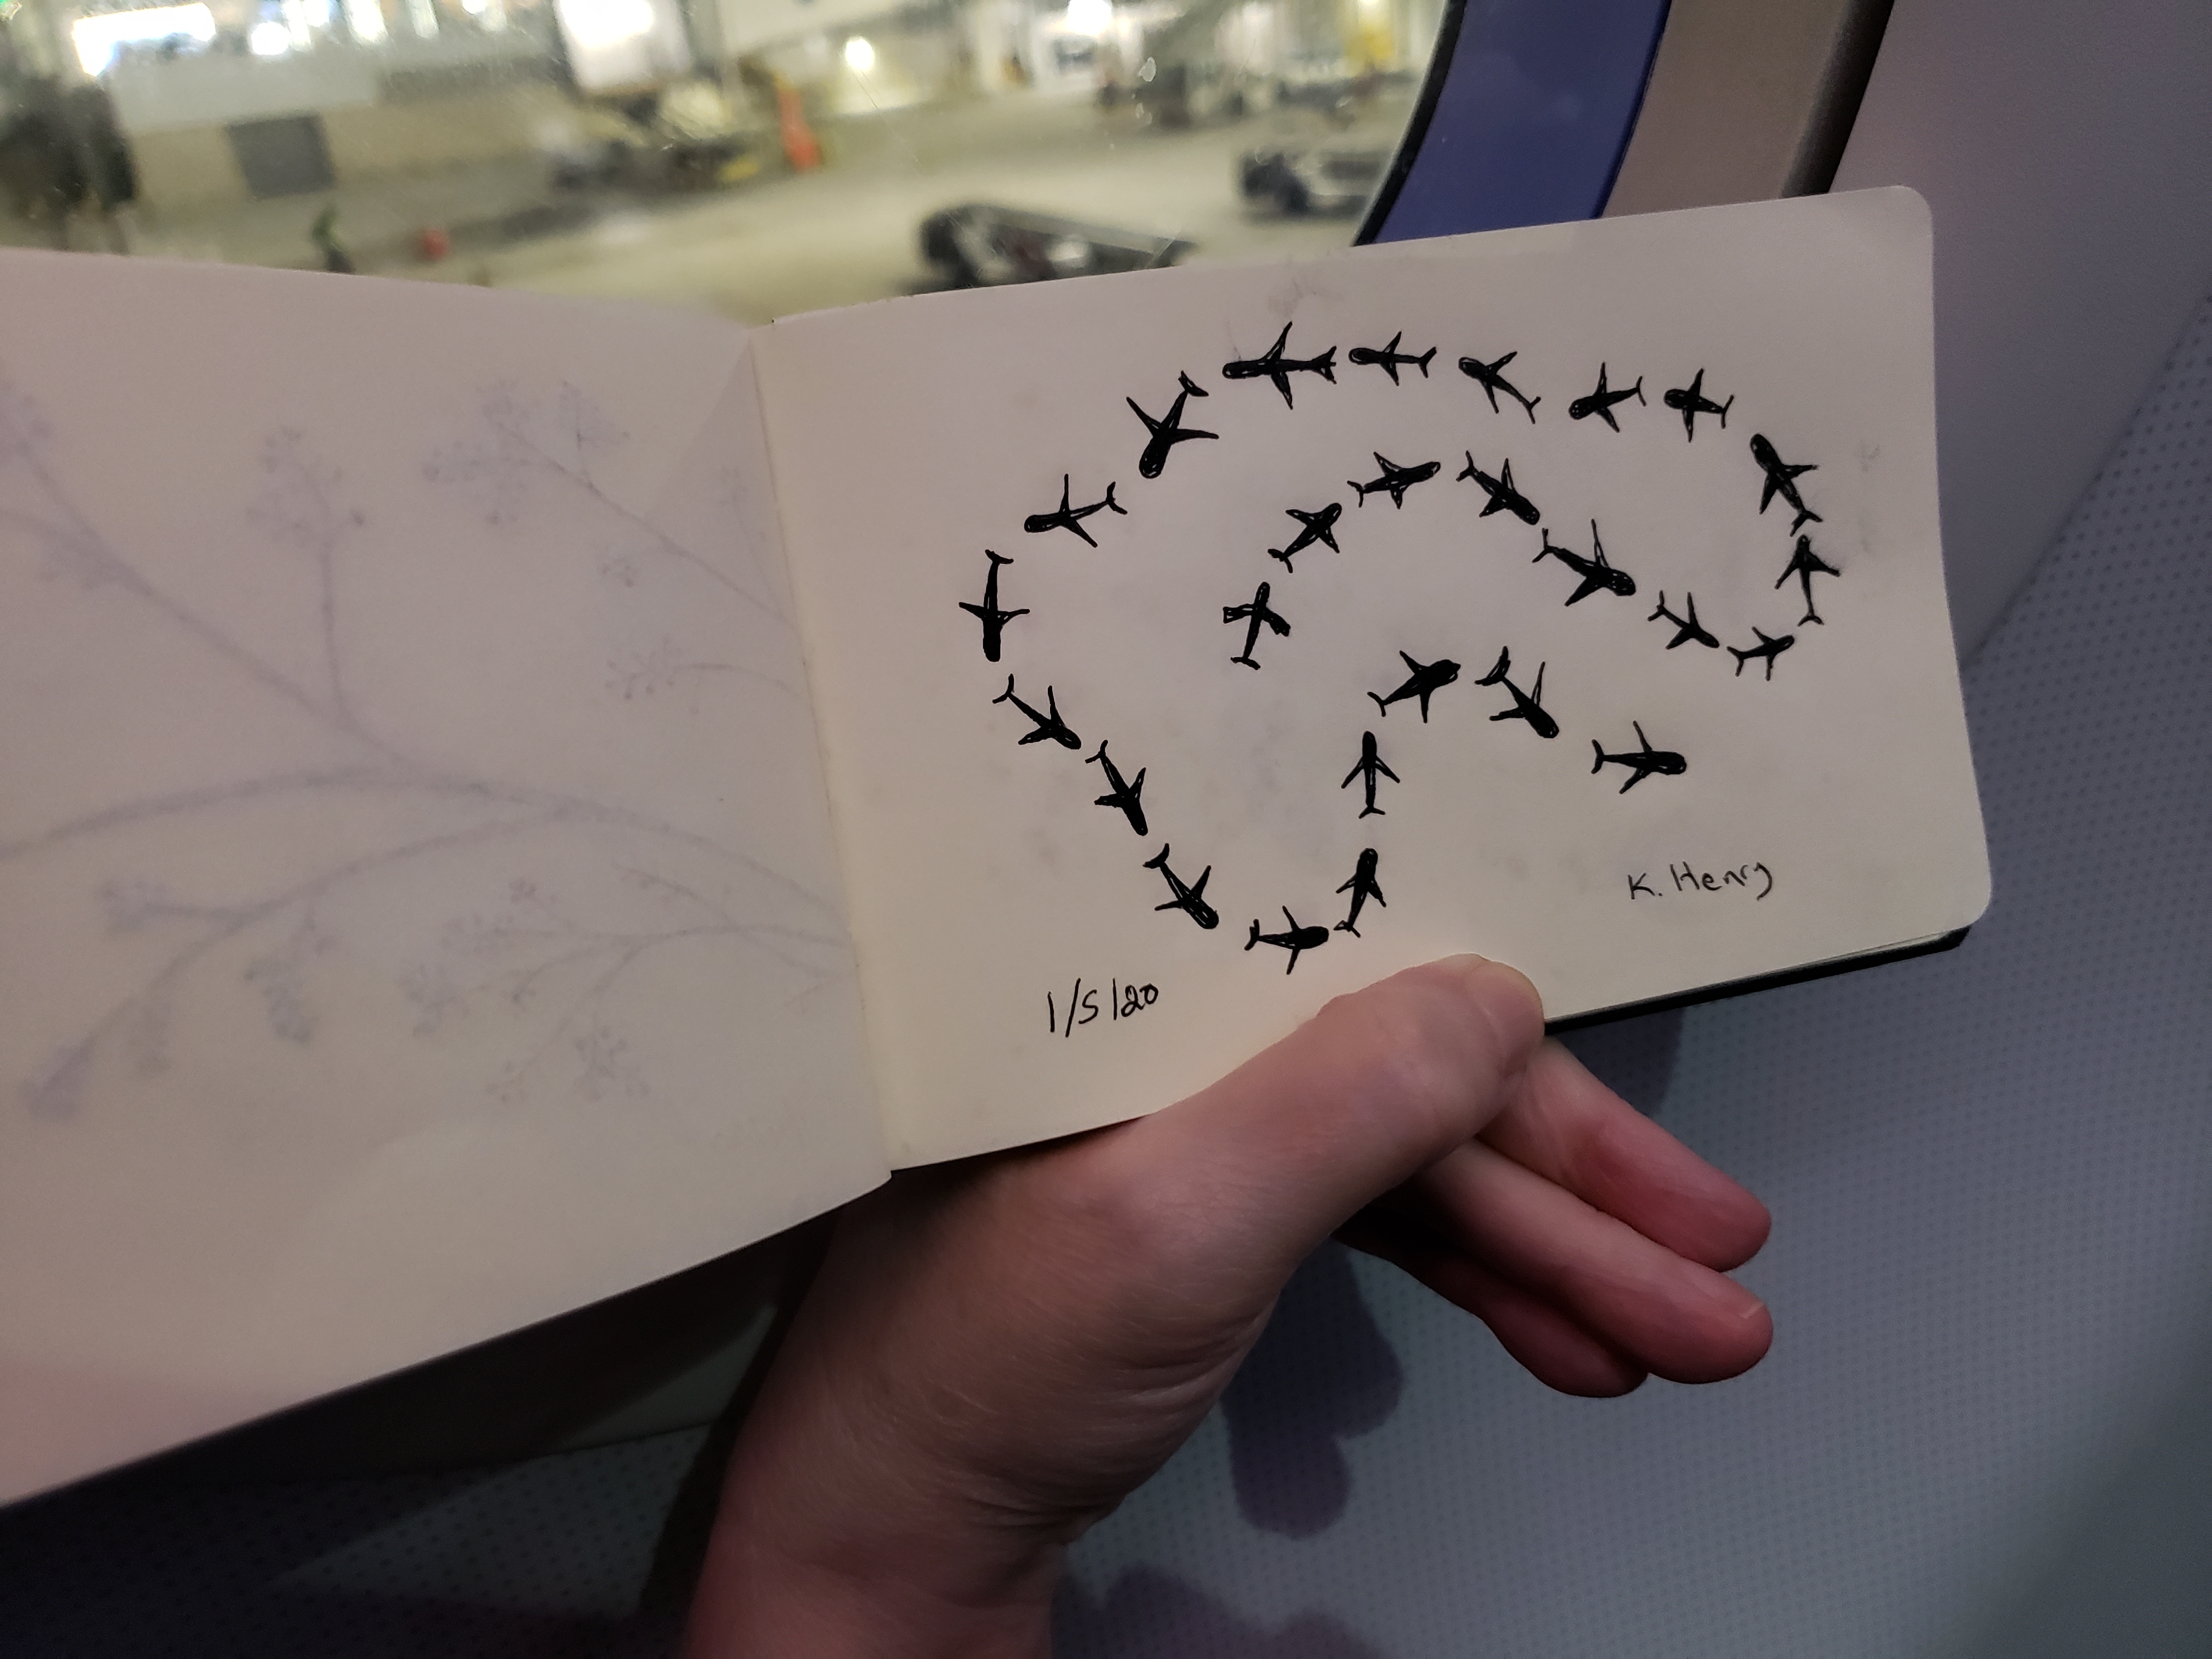 K. Henry
1/5/20